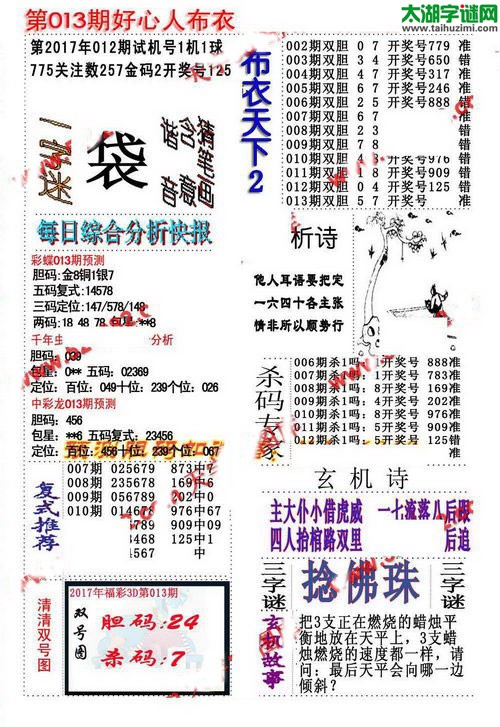 第013期好心人布衣
太湖字谜网
www.taihuzimi.com
第2017年012期试机号1机1球
775关注数257金码2开奖号125
袋
每日综合分析快报
彩蝶013期预测
胆码:金8铜1银7
五码复式:14578
三码定位:147/578/148
两码: 18 48 78 包星:**8
千年 分析
胆码: 039
包星: 0** 五码: 02369
定位: 百位: 049十位: 239个位: 026
中彩龙013期预测
胆码: 456
包星: **6 五码: 23456
定位: 百位: 456十位: 239个位: 067
复式推荐
007期 025679 873中
008期 235678 169中6
009期 056789 202中0
010期 014678 976中67
789 909中
4468 125中
4567中
清清双号图
2017年福彩3D第013期
双号图
胆码:24
杀码:7
布衣天下2
002期双胆 0 7 开奖号779 准
003期双胆 3 4 开奖号650 错
004期双胆 6 7 开奖号317 错
005期双胆 4 7 开奖号246 准
006期双胆 2 5 开奖号888 错
007期双胆 6 7
008期双胆 2 3
009期双胆 7 8
010期双胆 4 开奖号976 错
011期双胆 1 8 开奖号909 错
012期双胆 0 4 开奖号125 错
013期双胆 5 7 开奖号
析诗
他人耳语要把定
一六四十各主张
情非所以顺势行
杀码专家
006期杀1吗: 1开奖号 888准
007期杀1吗: 5开奖号 783准
008期杀1吗: 8开奖号 169准
009期杀1吗: 4开奖号 202准
010期杀1吗: 5开奖号 976准
011期杀1吗: 8开奖号 909准
012期杀1吗: 5开奖号 125错
准
玄机诗
主大仆小借虎威 一七流落八后跟
四人抬棺路双里 后追
三字谜
捻佛珠
三字谜
玄机故事
把3支正在燃烧的蜡烛平
衡地放在天平上,3支蜡
烛燃烧的速度都一样,请
问:最后天平会向哪一边
倾斜?